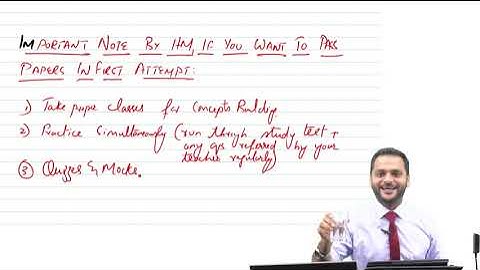 IMPORTANT NOTE BY HM, IF YOU WANT TO PASS
PAPERS IN FIRST ATTEMPT:
1) Take proper classes for Concepts Building
2) Practice Simultaneously (run through study text +
any qps referred by your
teacher regularly)
③ Quizzes & Mocks.